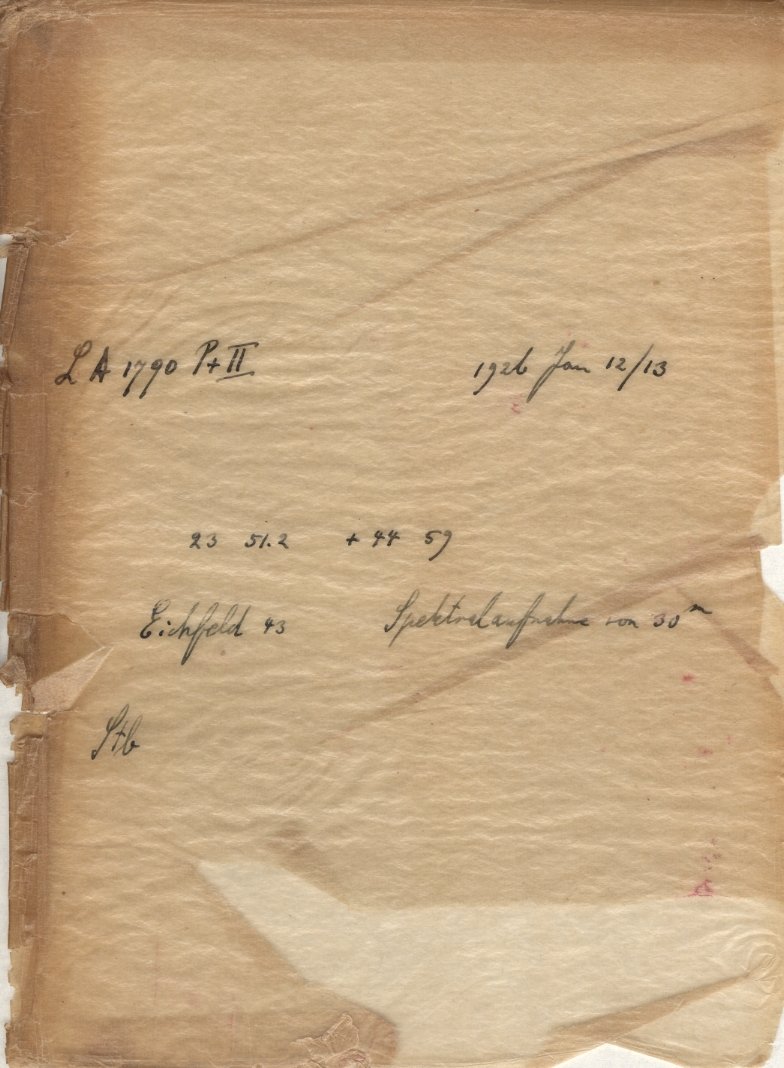 LA 1790 Pt II 1926 Jan 12/13
23 51.2 + 44 59
Eichfeld 43 Spektralaufnahme von 30ᵐ
Stb